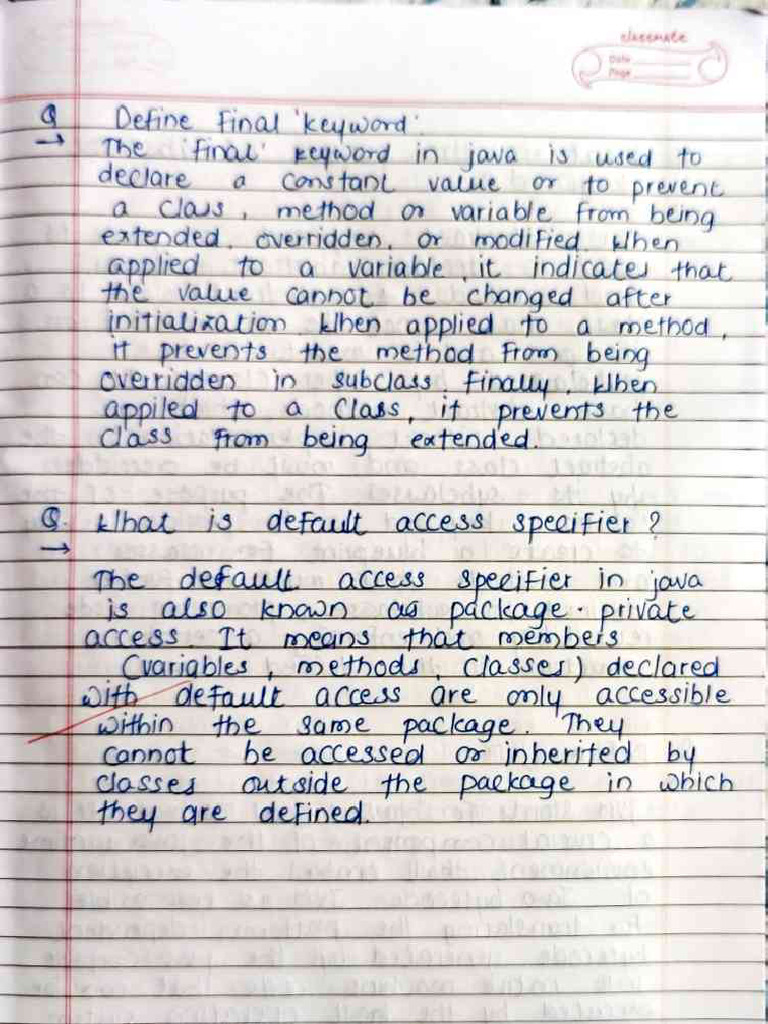 classmate
Date
Page
Q Define Final 'keyword'.
→ The 'final' keyword in java is used to
declare a constant value or to prevent
a class, method or variable from being
extended, overridden, or modified. When
applied to a variable, it indicates that
the value cannot be changed after
initialization. When applied to a method,
it prevents the method from being
overridden in subclass. Finally, when
appiled to a class, it prevents the
class from being extended.
Q. What is default access specifier?
→
The default access specifier in java
is also known as package-private
access. It means that members
(variables, methods, classes) declared
with default access are only accessible
within the same package. They
cannot be accessed or inherited by
classes outside the package in which
they are defined.